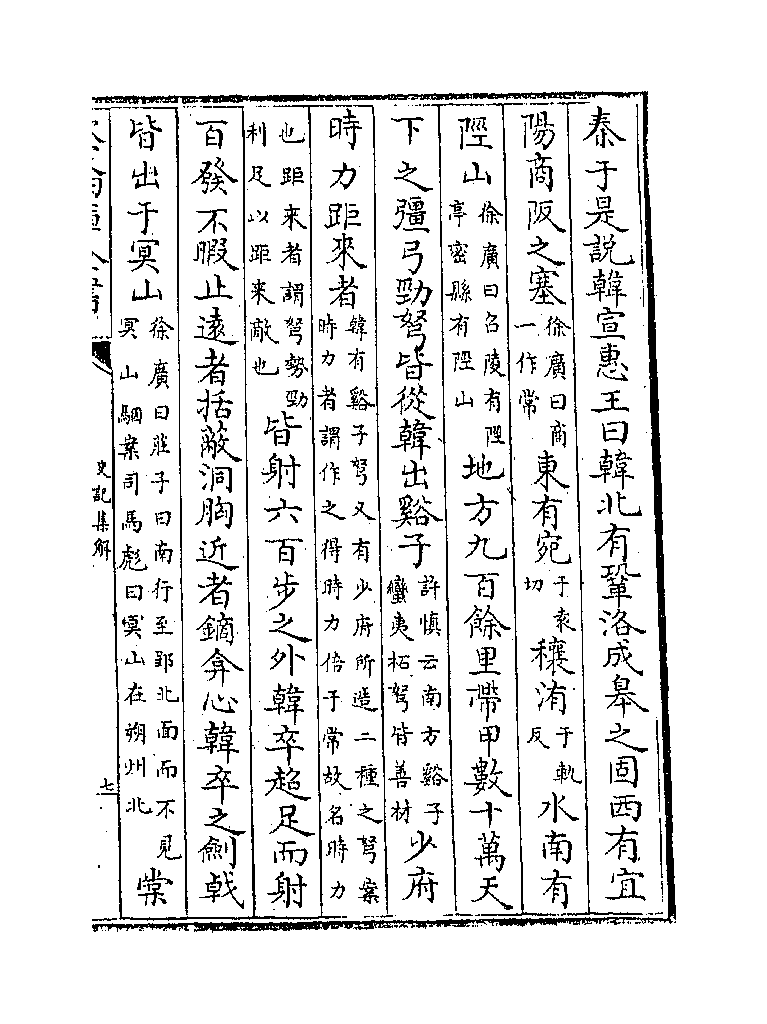 秦于是説韓宣惠王曰韓北有鞏洛成皋之固西有宜
陽商阪之塞徐廣曰商一作常東有宛于袁切穰洧于軌反水南有
陘山徐廣曰召陵有陘亭密縣有陘山地方九百餘里帶甲數十萬天
下之彊弓勁弩皆從韓出谿子許慎云南方谿子蠻夷柘弩皆善材少府
時力距來者韓有谿子弩又有少府所造二種之弩案時力者謂作之得時力倍于常故名時力
也距來者謂弩勢勁利足以距來敵也皆射六百步之外韓卒超足而射
百發不暇止遠者括蔽洞胸近者鏑弇心韓卒之劍戟
皆出于冥山徐廣曰莊子曰南行至郢北面而不見冥山駰案司馬彪曰冥山在朔州北棠
史記集解
七